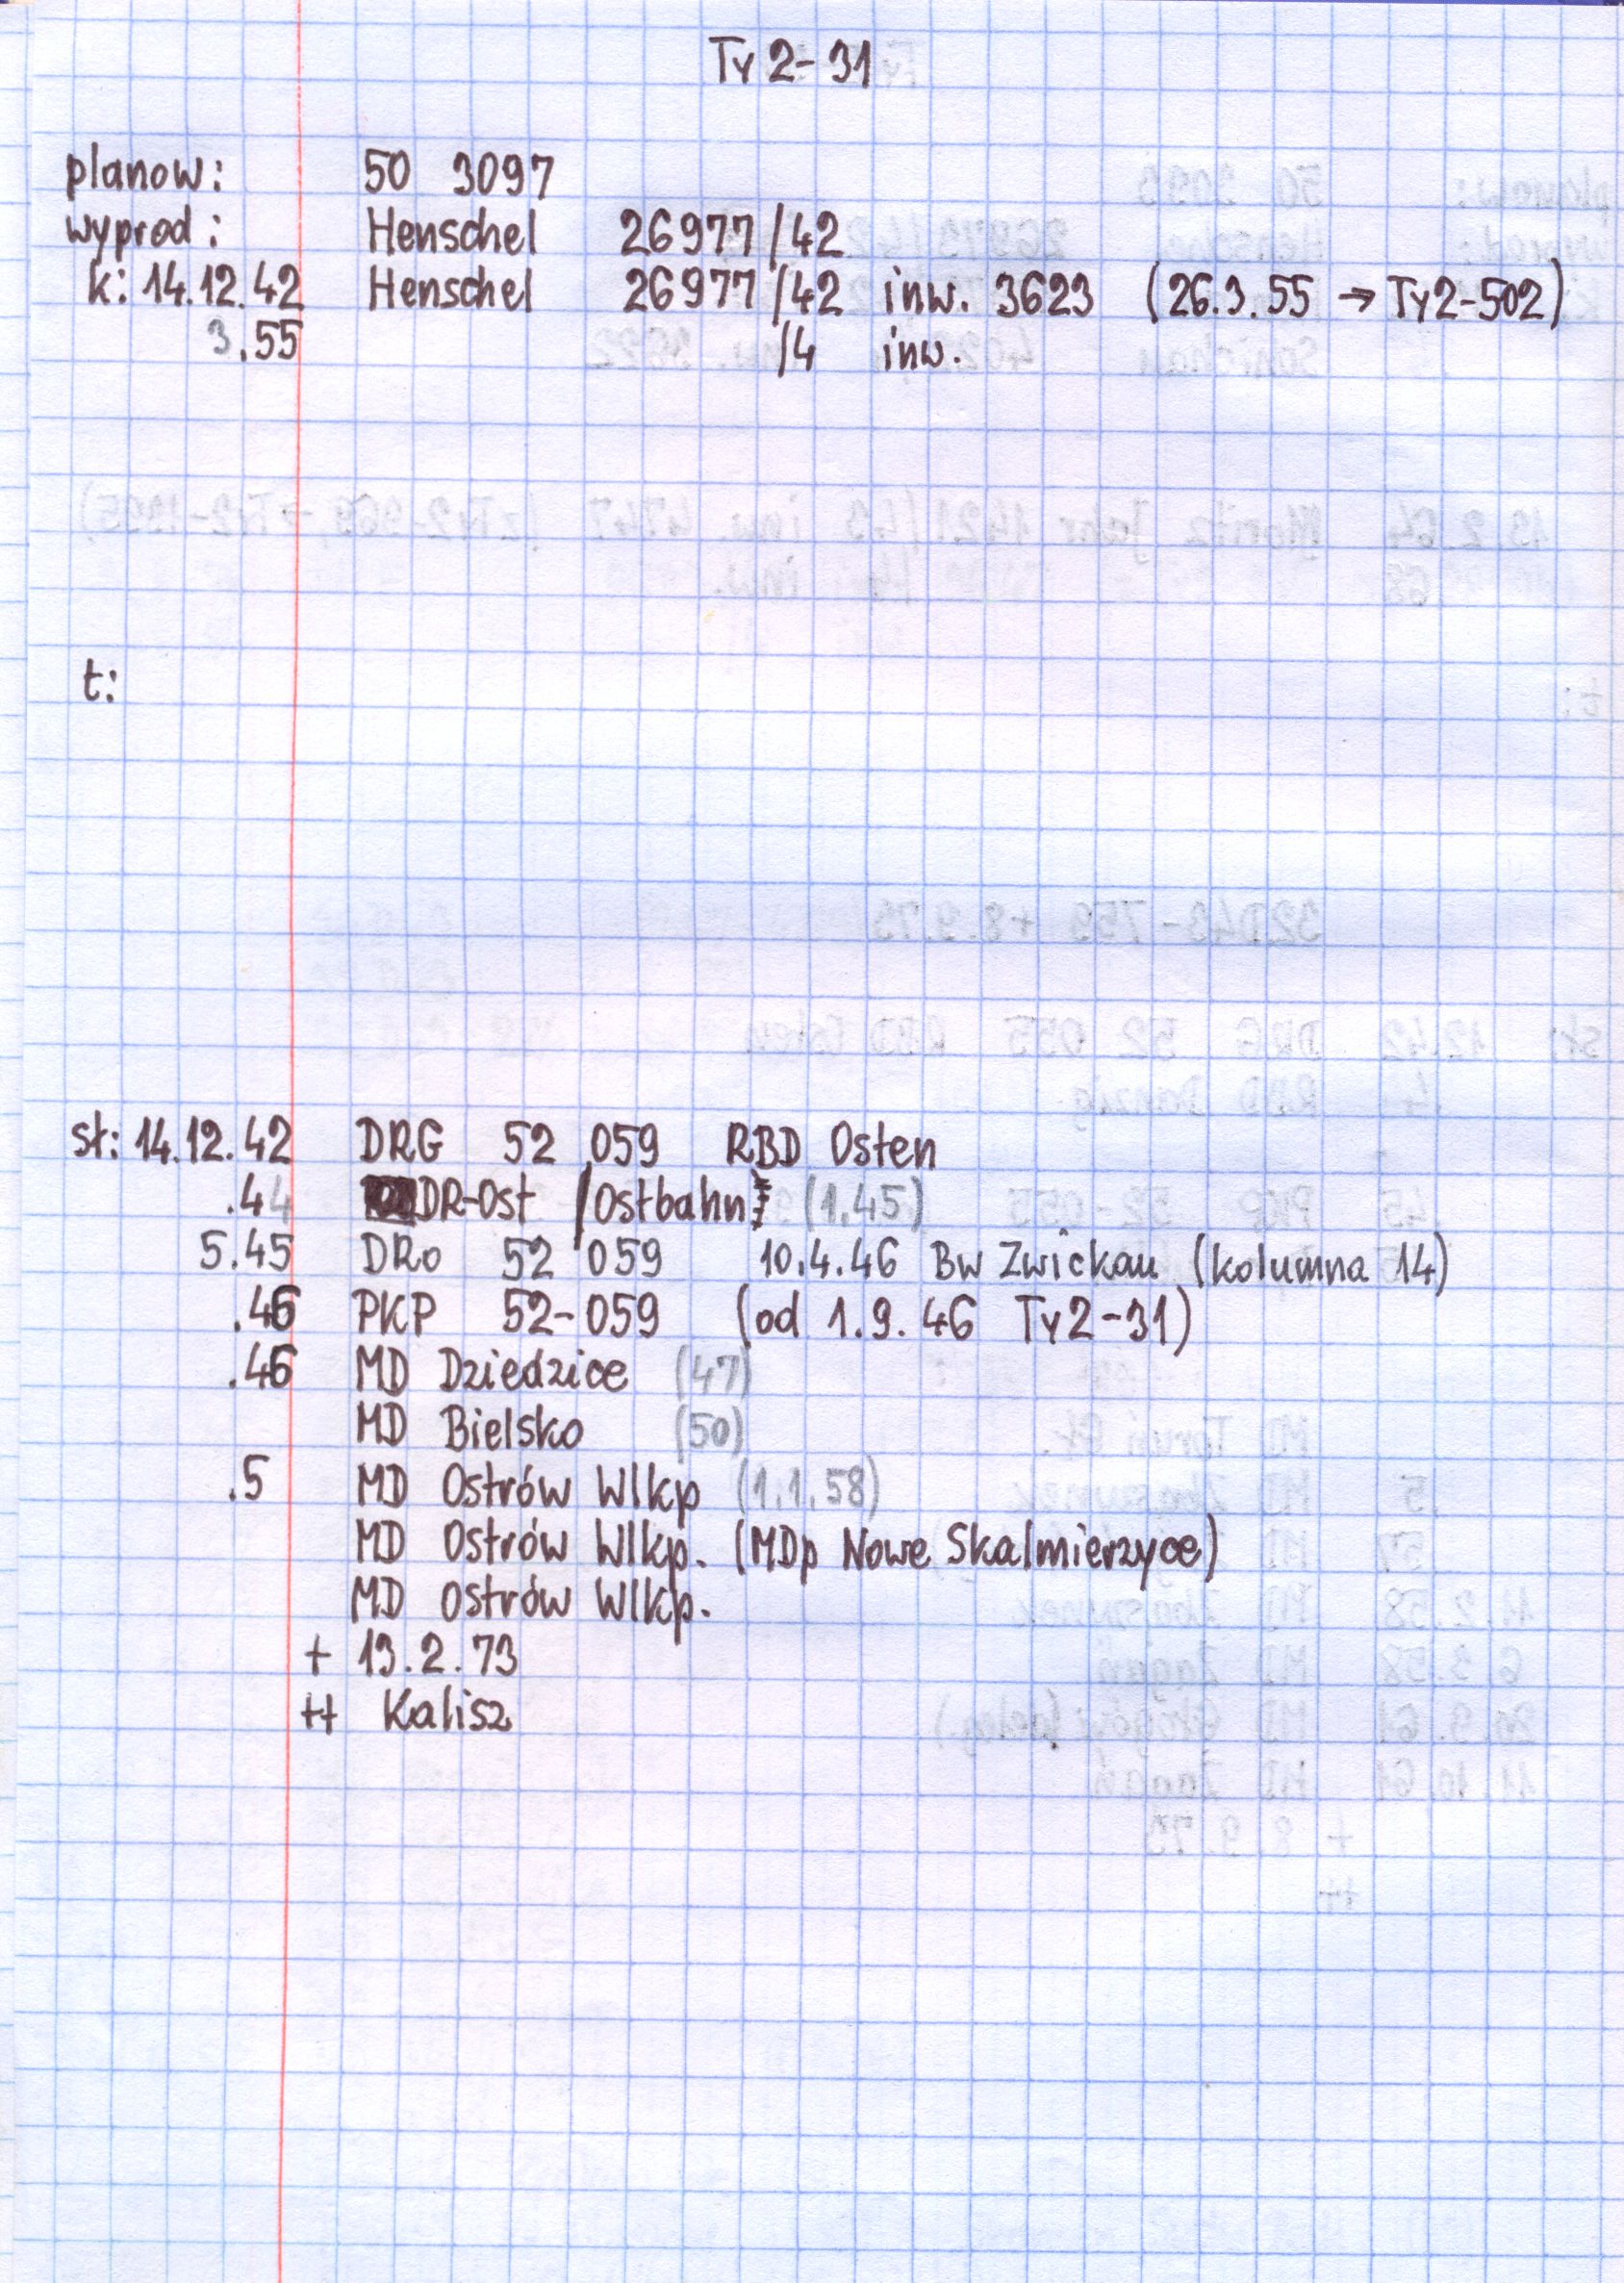 Ty2-31
planow: 50 3097
wyprod: Henschel 26977/42
k: 14.12.42 Henschel 26977/42 inw. 3623 (26.3.55 → Ty2-502)
3.55 /4 inw.
t:
st: 14.12.42 DRG 52 059 RBD Osten
.44 DR-Ost /Ostbahn (1.45)
5.45 DRo 52 059 10.4.46 Bw Zwickau (kolumna 14)
.46 PKP 52-059 (od 1.9.46 Ty2-31)
.46 MD Dziedzice (47)
MD Bielsko (50)
.5 MD Ostrów Wlkp (1.1.58)
MD Ostrów Wlkp. (MDp Nowe Skalmierzyce)
MD Ostrów Wlkp.
+ 13.2.73
++ Kalisz